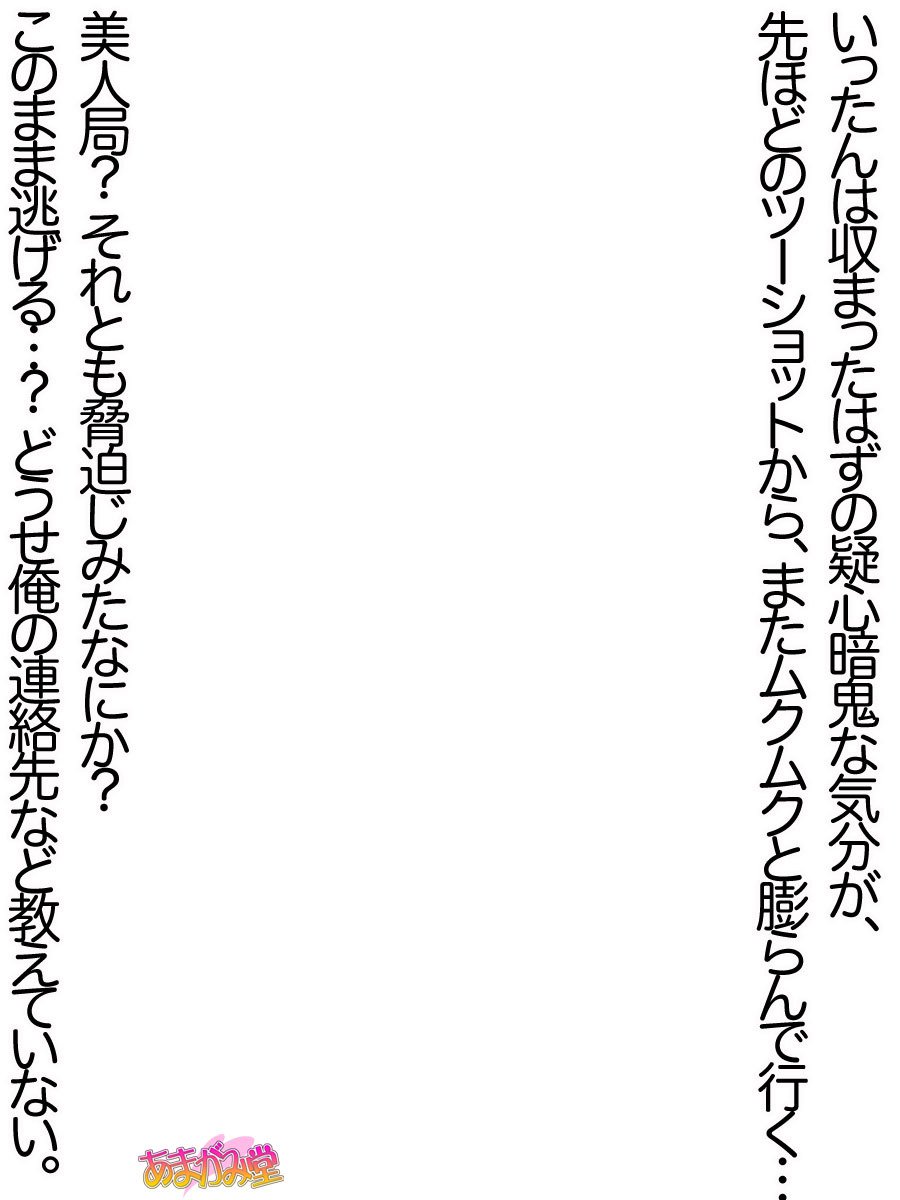 いったんは収まったはずの疑心暗鬼な気分が、
先ほどのツーショットから、またムクムクと膨らんで行く…
美人局？それとも脅迫じみたなにか？
このまま逃げる…？どうせ俺の連絡先など教えていない。
あまがみ堂